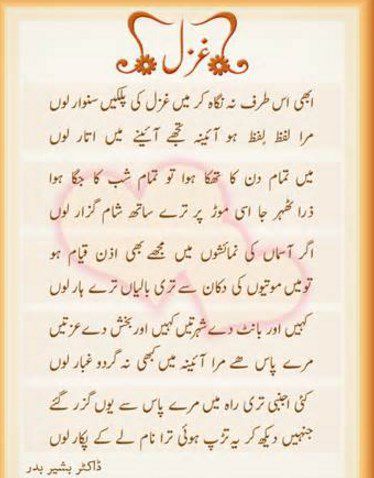 غزل
ابھی اس طرف نہ نگاہ کر میں غزل کی پلکیں سنوار لوں
مرا لفظ لفظ ہو آئینہ تجھے آئینے میں اتار لوں
میں تمام دن کا تھکا ہوا تو تمام شب کا جگا ہوا
ذرا ٹھہر جا اسی موڑ پر ترے ساتھ شام گزار لوں
اگر آسماں کی نمائشوں میں مجھے بھی اذن قیام ہو
تو میں موتیوں کی دکان سے تری بالیاں ترے ہار لوں
کہیں اور بانٹ دے شہرتیں کہیں اور بخش دے عزتیں
مرے پاس ھے مرا آئینہ میں کبھی نہ گرد و غبار لوں
کئی اجنبی تری راہ میں مرے پاس سے یوں گزر گئے
جنہیں دیکھ کر یہ تڑپ ہوئی ترا نام لے کے پکار لوں
ڈاکٹر بشیر بدر